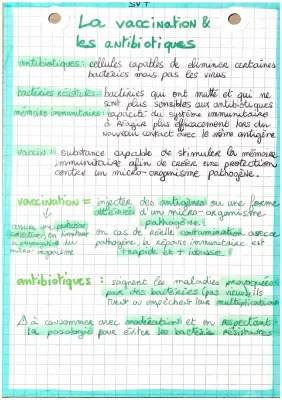 SVT
La vaccination &
les antibiotiques
antibiotiques : cellules capables de éliminer certaines
bactéries mais pas les virus
bactéries résistantes : bactéries qui ont muté et qui ne
sont plus sensibles aux antibiotiques
mémoire immunitaire : capacité du système immunitaire
à réagir plus efficacement lors du
nouveau contact avec le même antigène
vaccin = substance capable de stimuler la mémoire
immunitaire afin de créer une protection
contre un micro-organisme pathogène.
vaccination = injecter des antigènes ou une forme
atténuée d'un micro-organisme
pathogène.
assure une protection
collective, en limitant
la propagation du
micro-organisme
en cas de réelle contamination avec ce
pathogène, la réponse immunitaire est
+ rapide et + intense.
antibiotiques : soignent les maladies provoquées
par des bactéries (pas virus) ils
tuent ou empêchent leur multiplication
⚠ à consommer avec modération et en respectant
la posologie pour éviter les bactéries résistantes